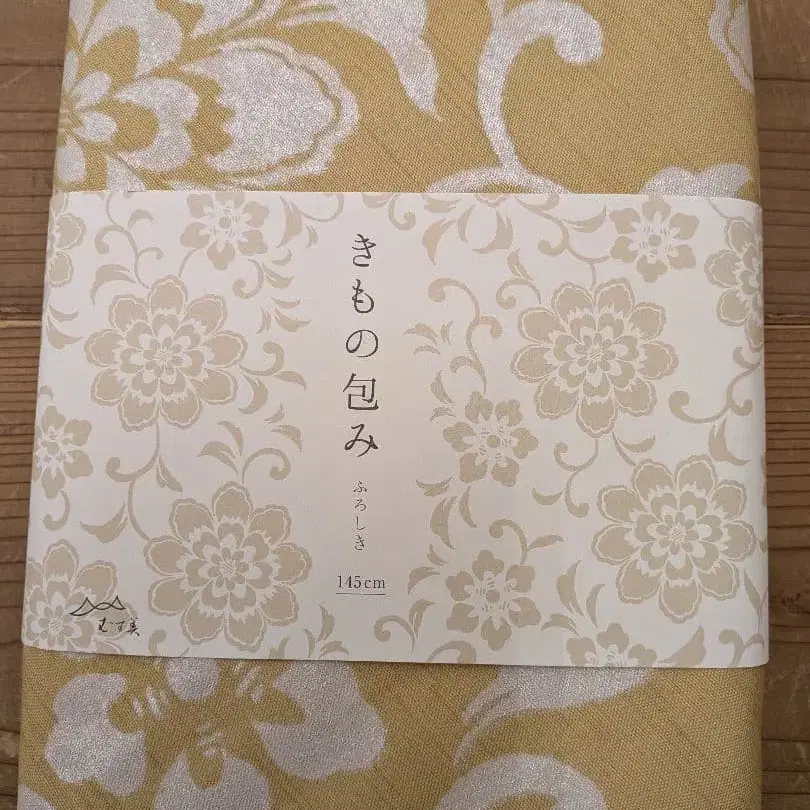 きもの包み
ふろしき
145cm
むす美